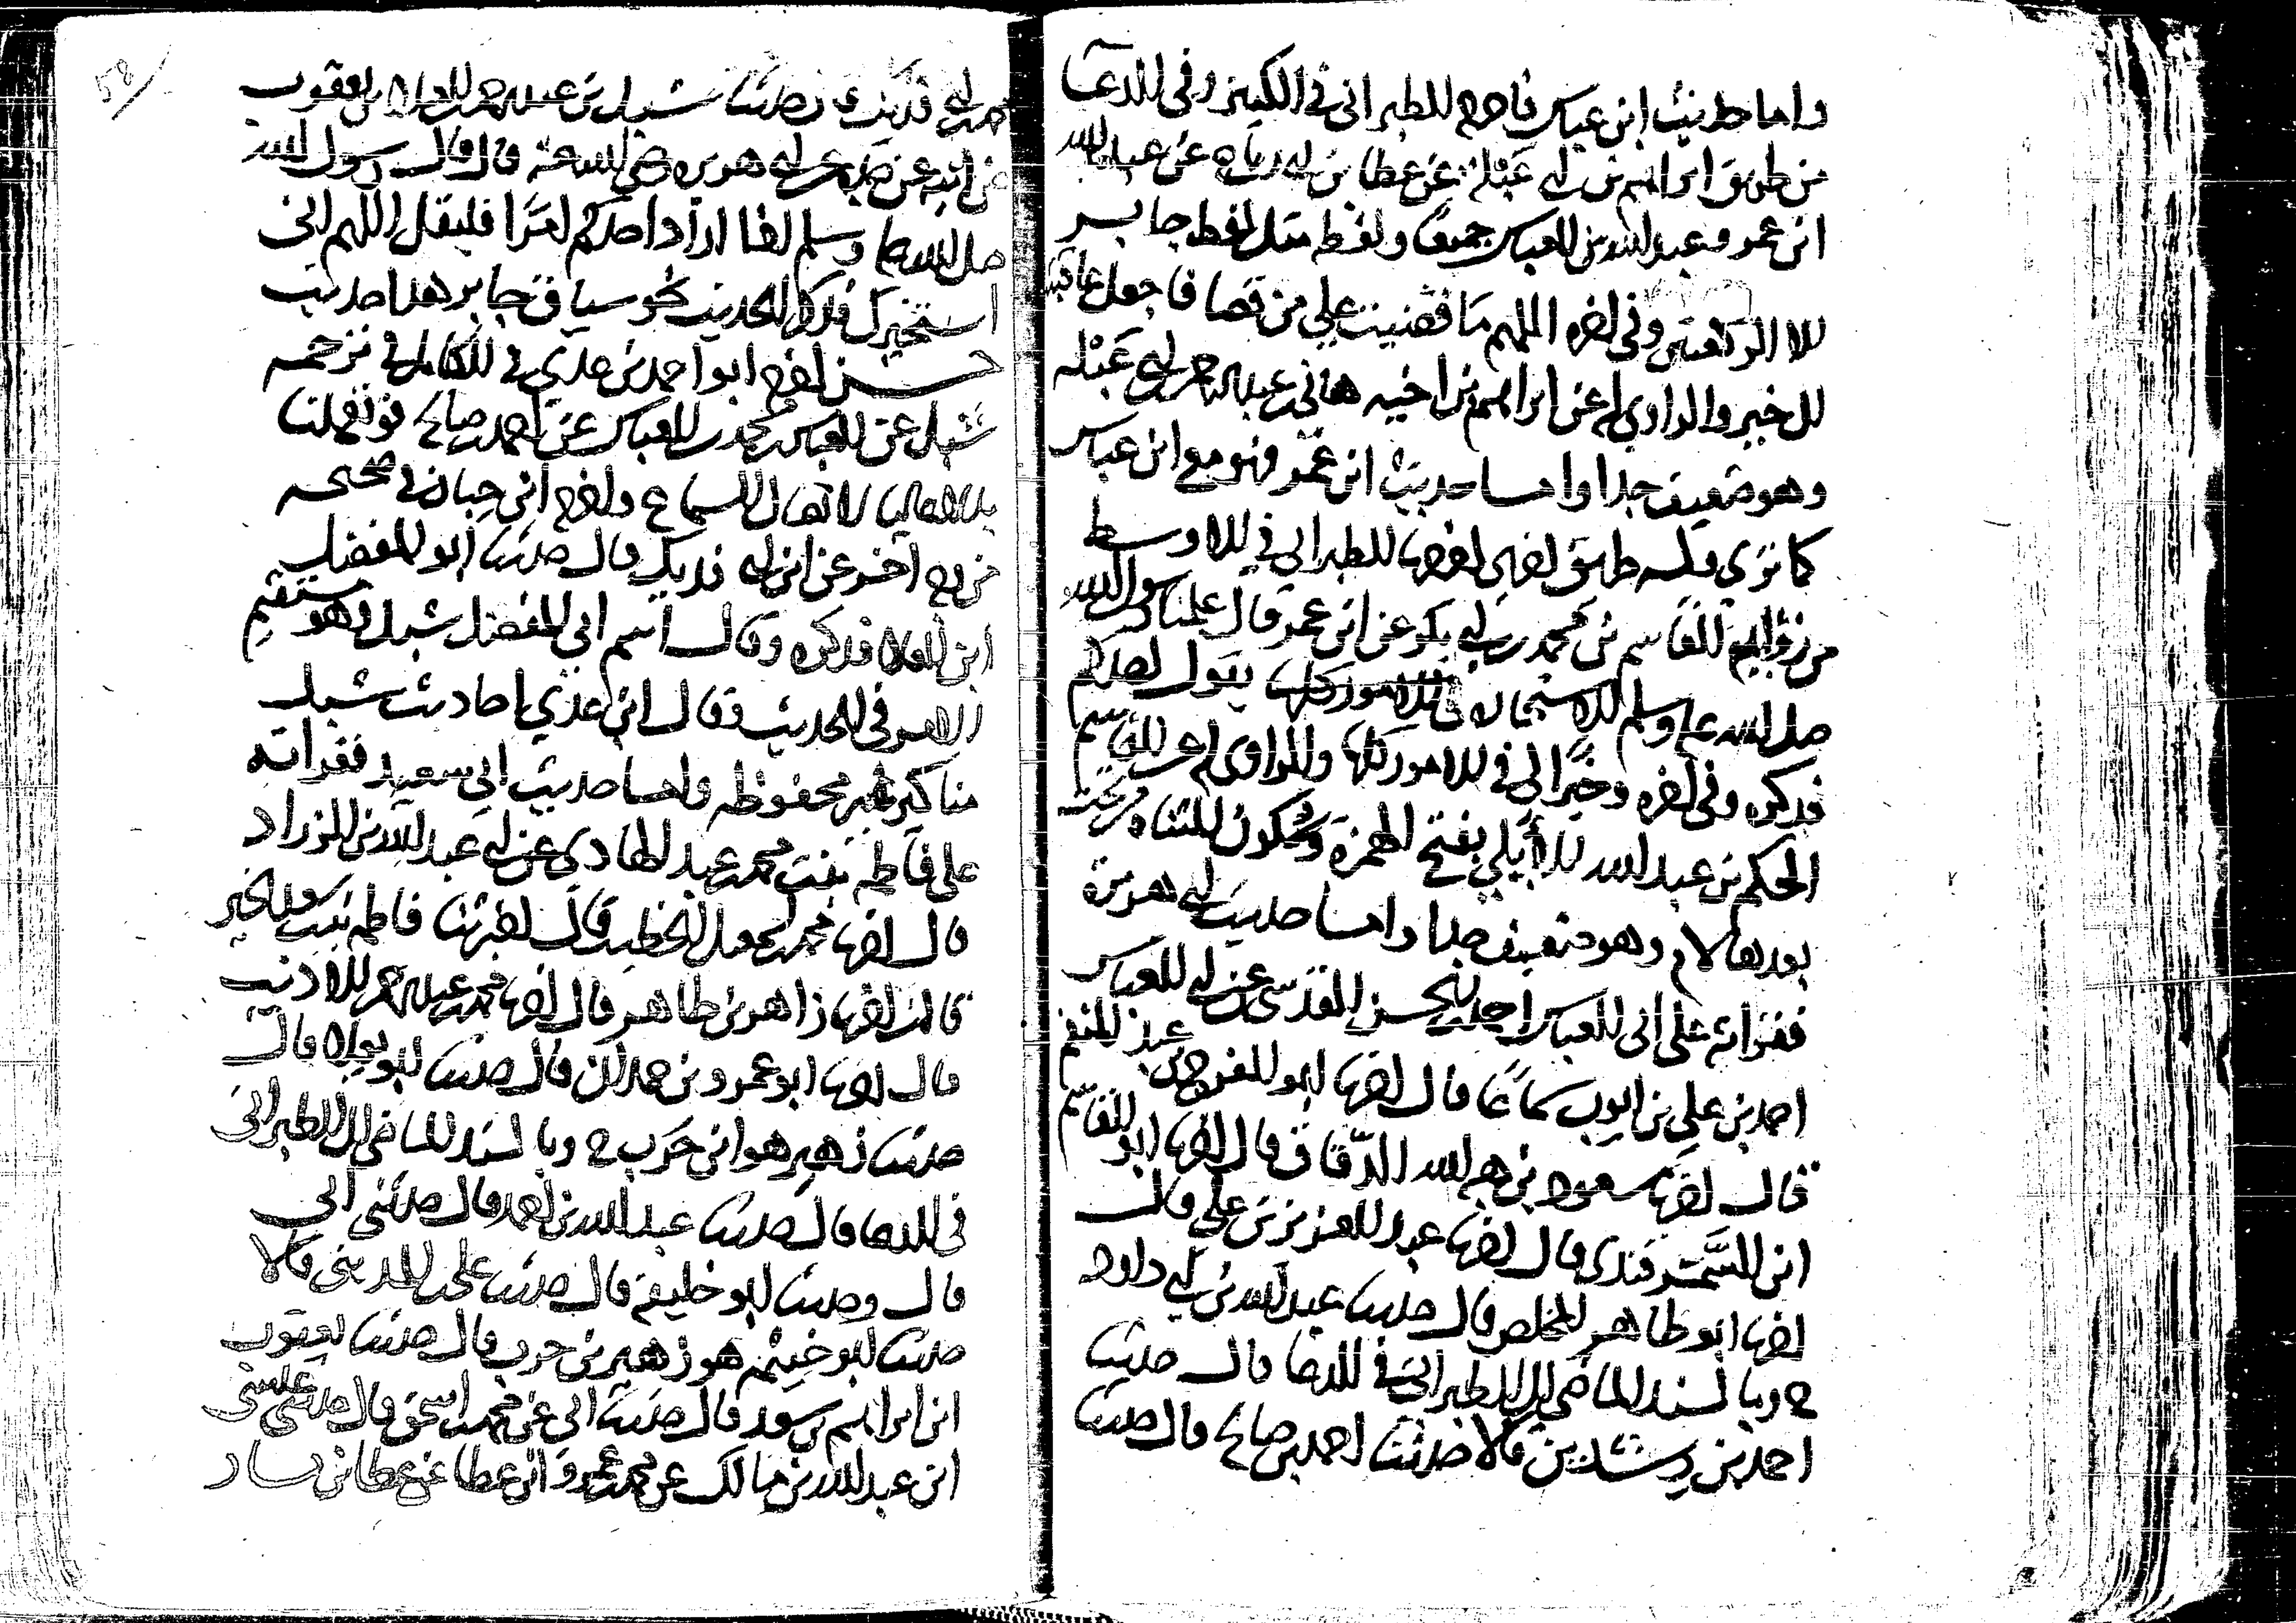 واما حديث ابن عباس فاخرجه الطبراني في الكبير وفي الدعا
من طريق ابراهيم بن ابي عبلة عن عطا بن ابي رباح عن عبد الله
ابن عمر وعبد الله بن العباس جميعا ولفظه مثل لفظ جابر
الا الركعتين وفي اخره اللهم ما قضيت علي من قضا فاجعل عاقبته
الى خير والراوي له عن ابراهيم بن اخيه هاني بن عبد الرحمن بن ابي عبلة
وهو ضعيف جدا واما حديث ابن عمر فهو مع ابن عباس
كما ترى وله طريق اخرى اخرجها الطبراني في الاوسط
من رواية القاسم بن محمد بن ابي بكر عن ابن عمر قال علمنا رسول الله
صلى الله عليه وسلم الاستخارة في الامور كلها يقول احدكم
فذكره وفي اخره وخر لي في الامور كلها والراوي له عن القاسم
الحكم بن عبد الله الايلي بفتح الهمزة وسكون المثناة من تحت
بعدها لام وهو ضعيف جدا واما حديث ابي هريرة
فقراته على ابي العباس احمد بن الحسن المقدسي عن ابي العباس
احمد بن علي بن ايوب سماعا قال اخبرنا ابو الفرج بن عبد المنعم
قال اخبرنا مسعود بن هبة الله الدقاق قال اخبرنا ابو القاسم
ابن السمرقندي قال اخبرنا عبد العزيز بن علي قال
اخبرنا ابو طاهر المخلص قال حدثنا عبد الله بن ابي داود
ح وبالسند الماضي الى الطبراني في الدعا قال حدثنا
احمد بن رشدين قالا حدثنا احمد بن صالح قال حدثنا
ابن ابي فديك حدثنا شبل بن عبد الرحمن العلا بن يعقوب
عن ابيه عن جده عن ابي هريرة رضي الله عنه قال قال رسول الله
صلى الله عليه وسلم اذا اراد احدكم امرا فليقل اللهم اني
استخيرك فذكر الحديث نحو سياق جابر هذا حديث
حسن اخرجه ابو احمد بن عدي في الكامل في ترجمة
شبل عن العباس بن محمد بن العباس عن احمد بن صالح فوقع لنا
بدلا عاليا لاتصال السماع واخرجه ابن حبان في صحيحه
من وجه اخر عن ابن ابي فديك قال حدثنا ابو المفضل
ابن العلا فذكره وقال اسم ابي المفضل شبل وهو مستقيم
الامر في الحديث وقال ابن عدي احاديث شبل
مناكير غير محفوظة واما حديث ابي سعيد فقراته
على فاطمة بنت محمد بن عبد الهادي عن ابي عبد الله بن الزراد
قال اخبرنا محمد بن اسمعيل الخطيب قال اخبرتنا فاطمة بنت سعد الخير
قالت اخبرنا زاهر بن طاهر قال اخبرنا محمد بن عبد الرحمن الاديب
قال اخبرنا ابو عمرو بن حمدان قال حدثنا ابو يعلى قال
حدثنا زهير هو ابن حرب ح وبالسند الماضي الى الطبراني
في الدعا قال حدثنا عبد الله بن احمد قال حدثني ابي
قال وحدثنا ابو خليفة قال حدثنا علي بن المديني قالا
حدثنا ابو خيثمة هو زهير بن حرب قال حدثنا يعقوب
ابن ابراهيم بن سعد قال حدثنا ابي عن محمد بن اسحق قال حدثني عيسى
ابن عبد الله بن مالك عن محمد بن عمرو ابن عطا عن عطا بن يسار
58